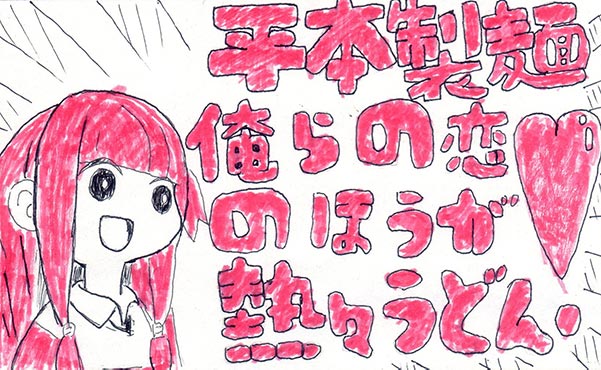 平本製麺
俺らの恋
のほうが
熱々うどん・